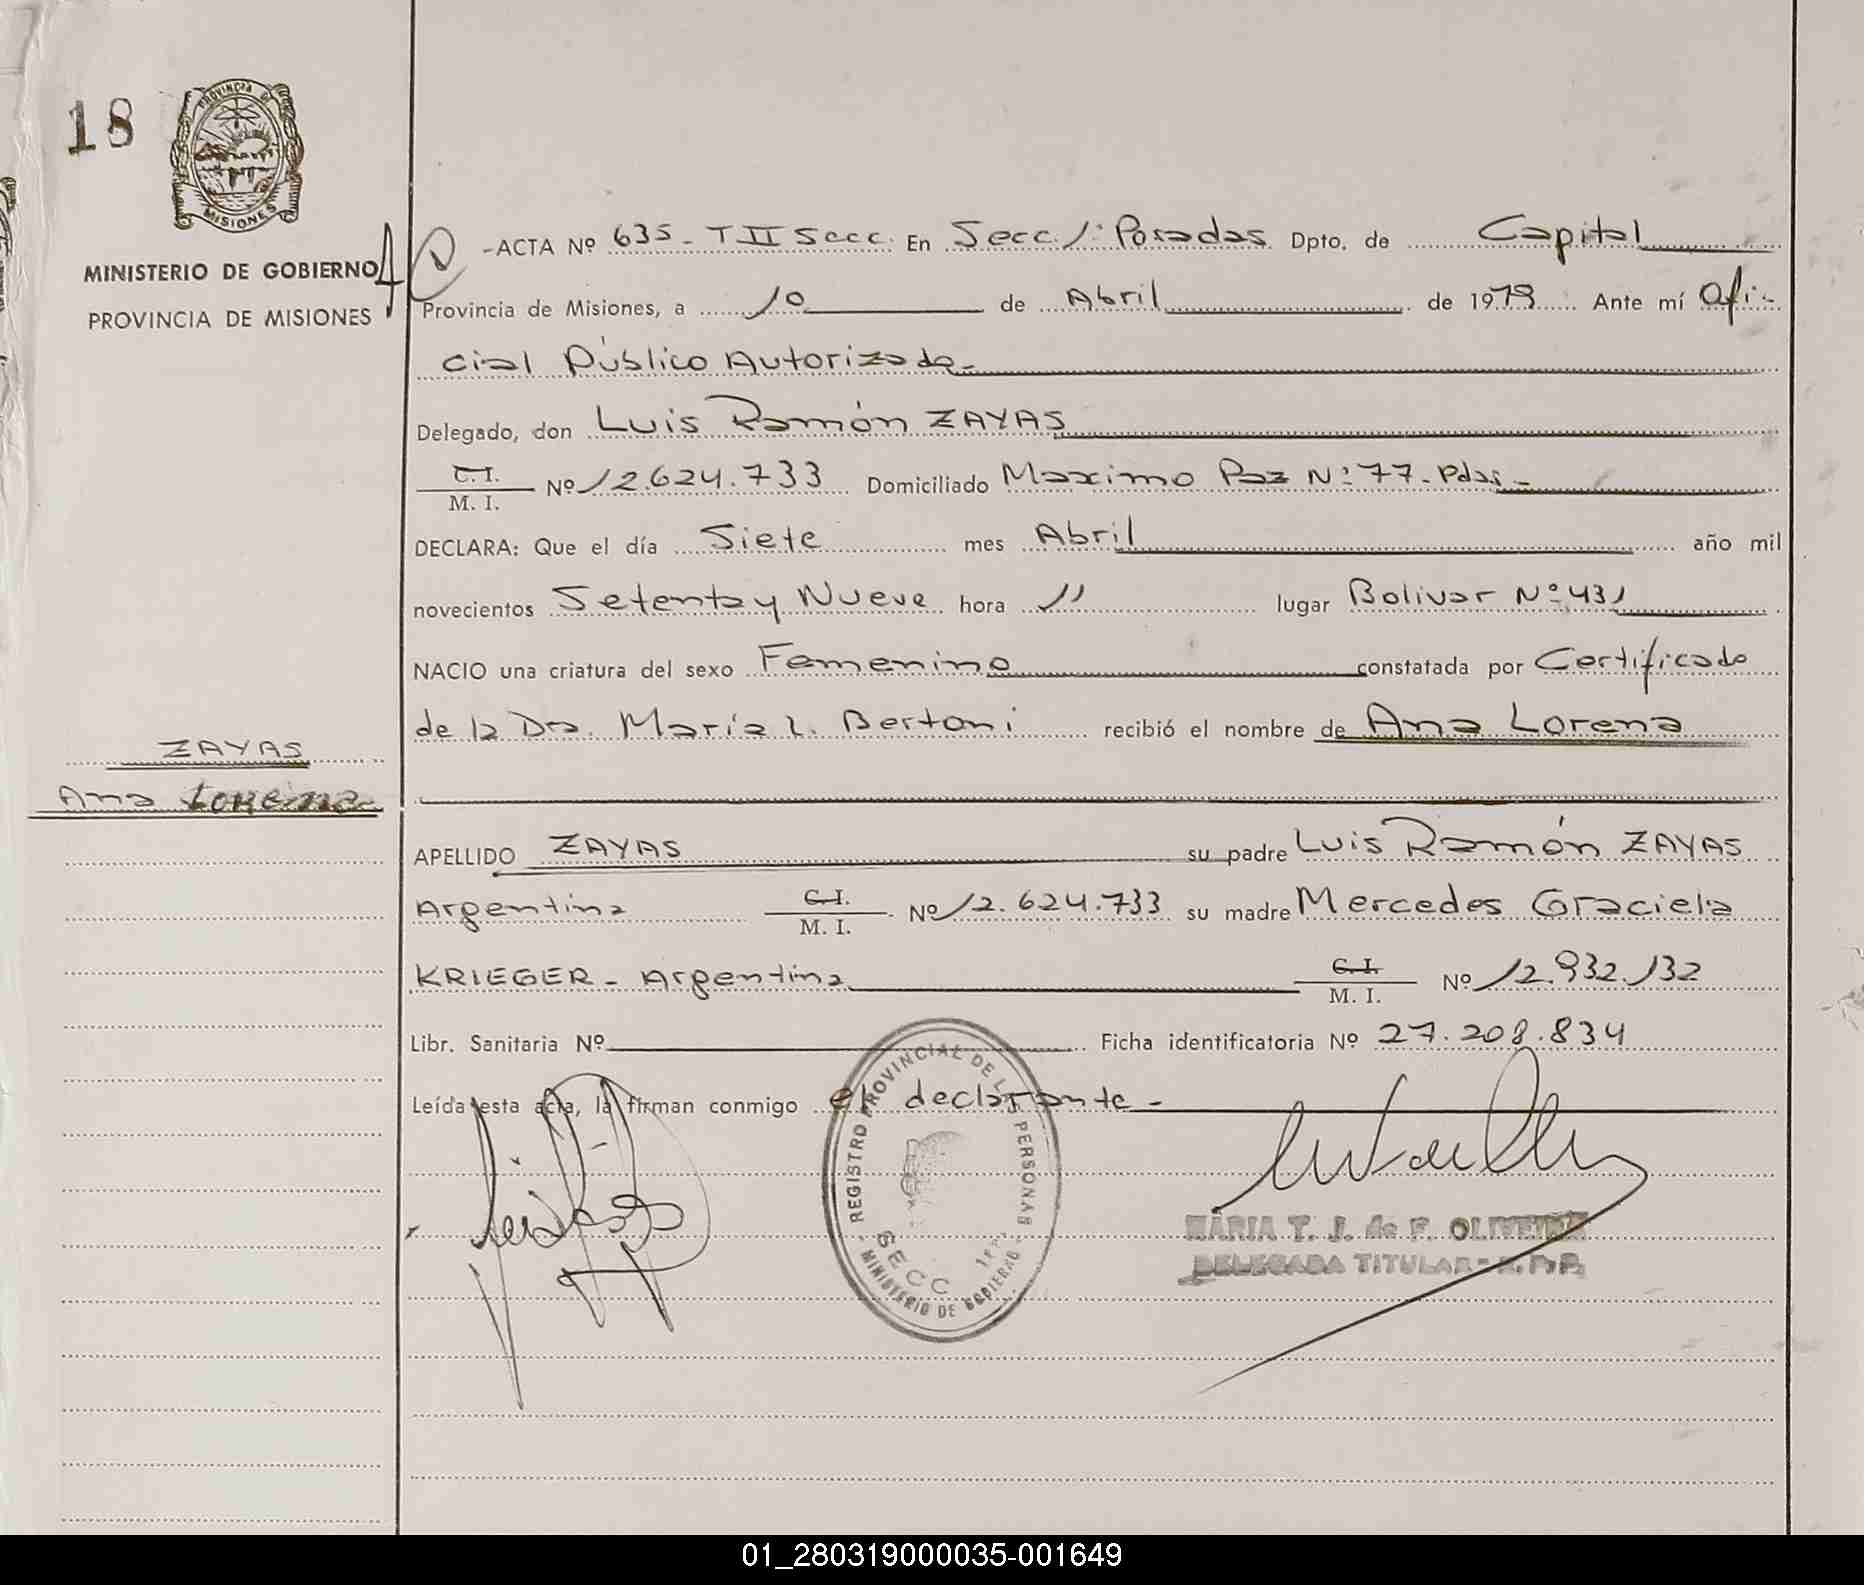 18
PROVINCIA DE
MISIONES
MINISTERIO DE GOBIERNO
PROVINCIA DE MISIONES
-ACTA Nº 635 - T II Secc. En Secc. 1ª Posadas Dpto. de Capital
Provincia de Misiones, a 10 de Abril de 1979 Ante mí Ofi-
cial Público Autorizado-
Delegado, don Luis Ramón ZAYAS
C. I.
M. I. Nº 12.624.733 Domiciliado Maximo Paz Nº 77. Pdas-
DECLARA: Que el día Siete mes Abril año mil
novecientos Setenta y Nueve hora 11 lugar Bolivar Nº 431
NACIO una criatura del sexo Femenino constatada por Certificado
de la Dra. María L. Bertoni recibió el nombre de Ana Lorena
ZAYAS
Ana Lorena
APELLIDO ZAYAS su padre Luis Ramón ZAYAS
Argentina C. I.
M. I. Nº 12.624.733 su madre Mercedes Graciela
KRIEGER - Argentina C. I.
M. I. Nº 12.932.132
Libr. Sanitaria Nº Ficha identificatoria Nº 27.208.834
Leída esta acta, la firman conmigo el declarante-
REGISTRO PROVINCIAL DE LAS PERSONAS
SECC 1ra.
- MINISTERIO DE GOBIERNO -
MARIA T. J. de F. OLIVEIRA
DELEGADA TITULAR - R. P. P.
01_280319000035-001649